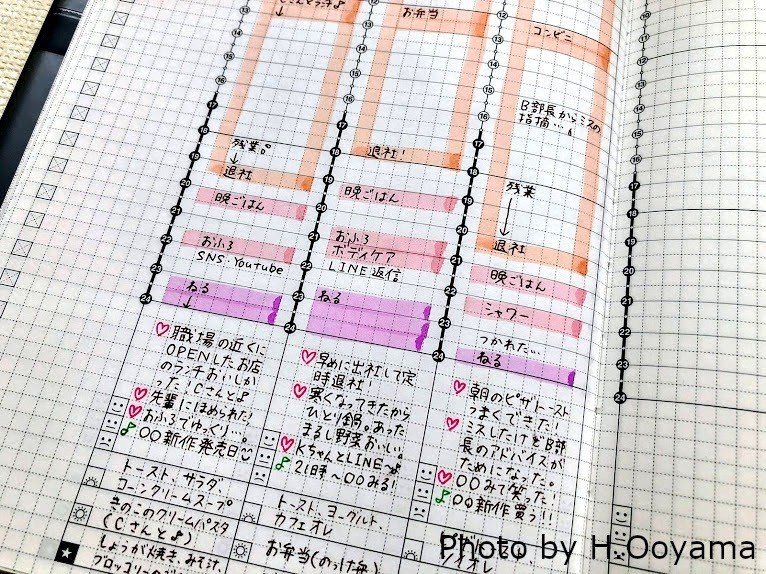 Cさんとランチ♪
↓
残業。
↓
退社
晩ごはん
おふろ
SNS. Youtube
ねる
↓
♡職場の近くに
OPENしたお店
のランチおいしか
った！Cさんと♪
♡先輩にほめられた♪
♡おふろでゆっくり…。
♪〇〇新作発売日
トースト、サラダ、
コーンクリームスープ
きのこのクリームパスタ
(Cさんと♪)
しょうが焼き、みそ汁、
ブロッコリーの
お弁当
退社！
晩ごはん
おふろ
ボディケア
LINE返信
ねる
♡早めに出社して定
時退社！
♡寒くなってきたから
ひとり鍋。あった
まるし野菜おいしい。
♡KちゃんとLINE〜♪
♪21時〜〇〇みる！
トースト、ヨーグルト、
カフェオレ
お弁当(のっけ弁)
コンビニ
B部長からミスの
指摘…。
残業
↓
退社
晩ごはん
シャワー
つかれた…
ねる
♡朝のピザトースト
うまくできた！
♡ミスしたけどB部
長のアドバイスが
ためになった。
♡〇〇みて笑った！
♪〇〇新作買う！！
Photo by H.Ooyama